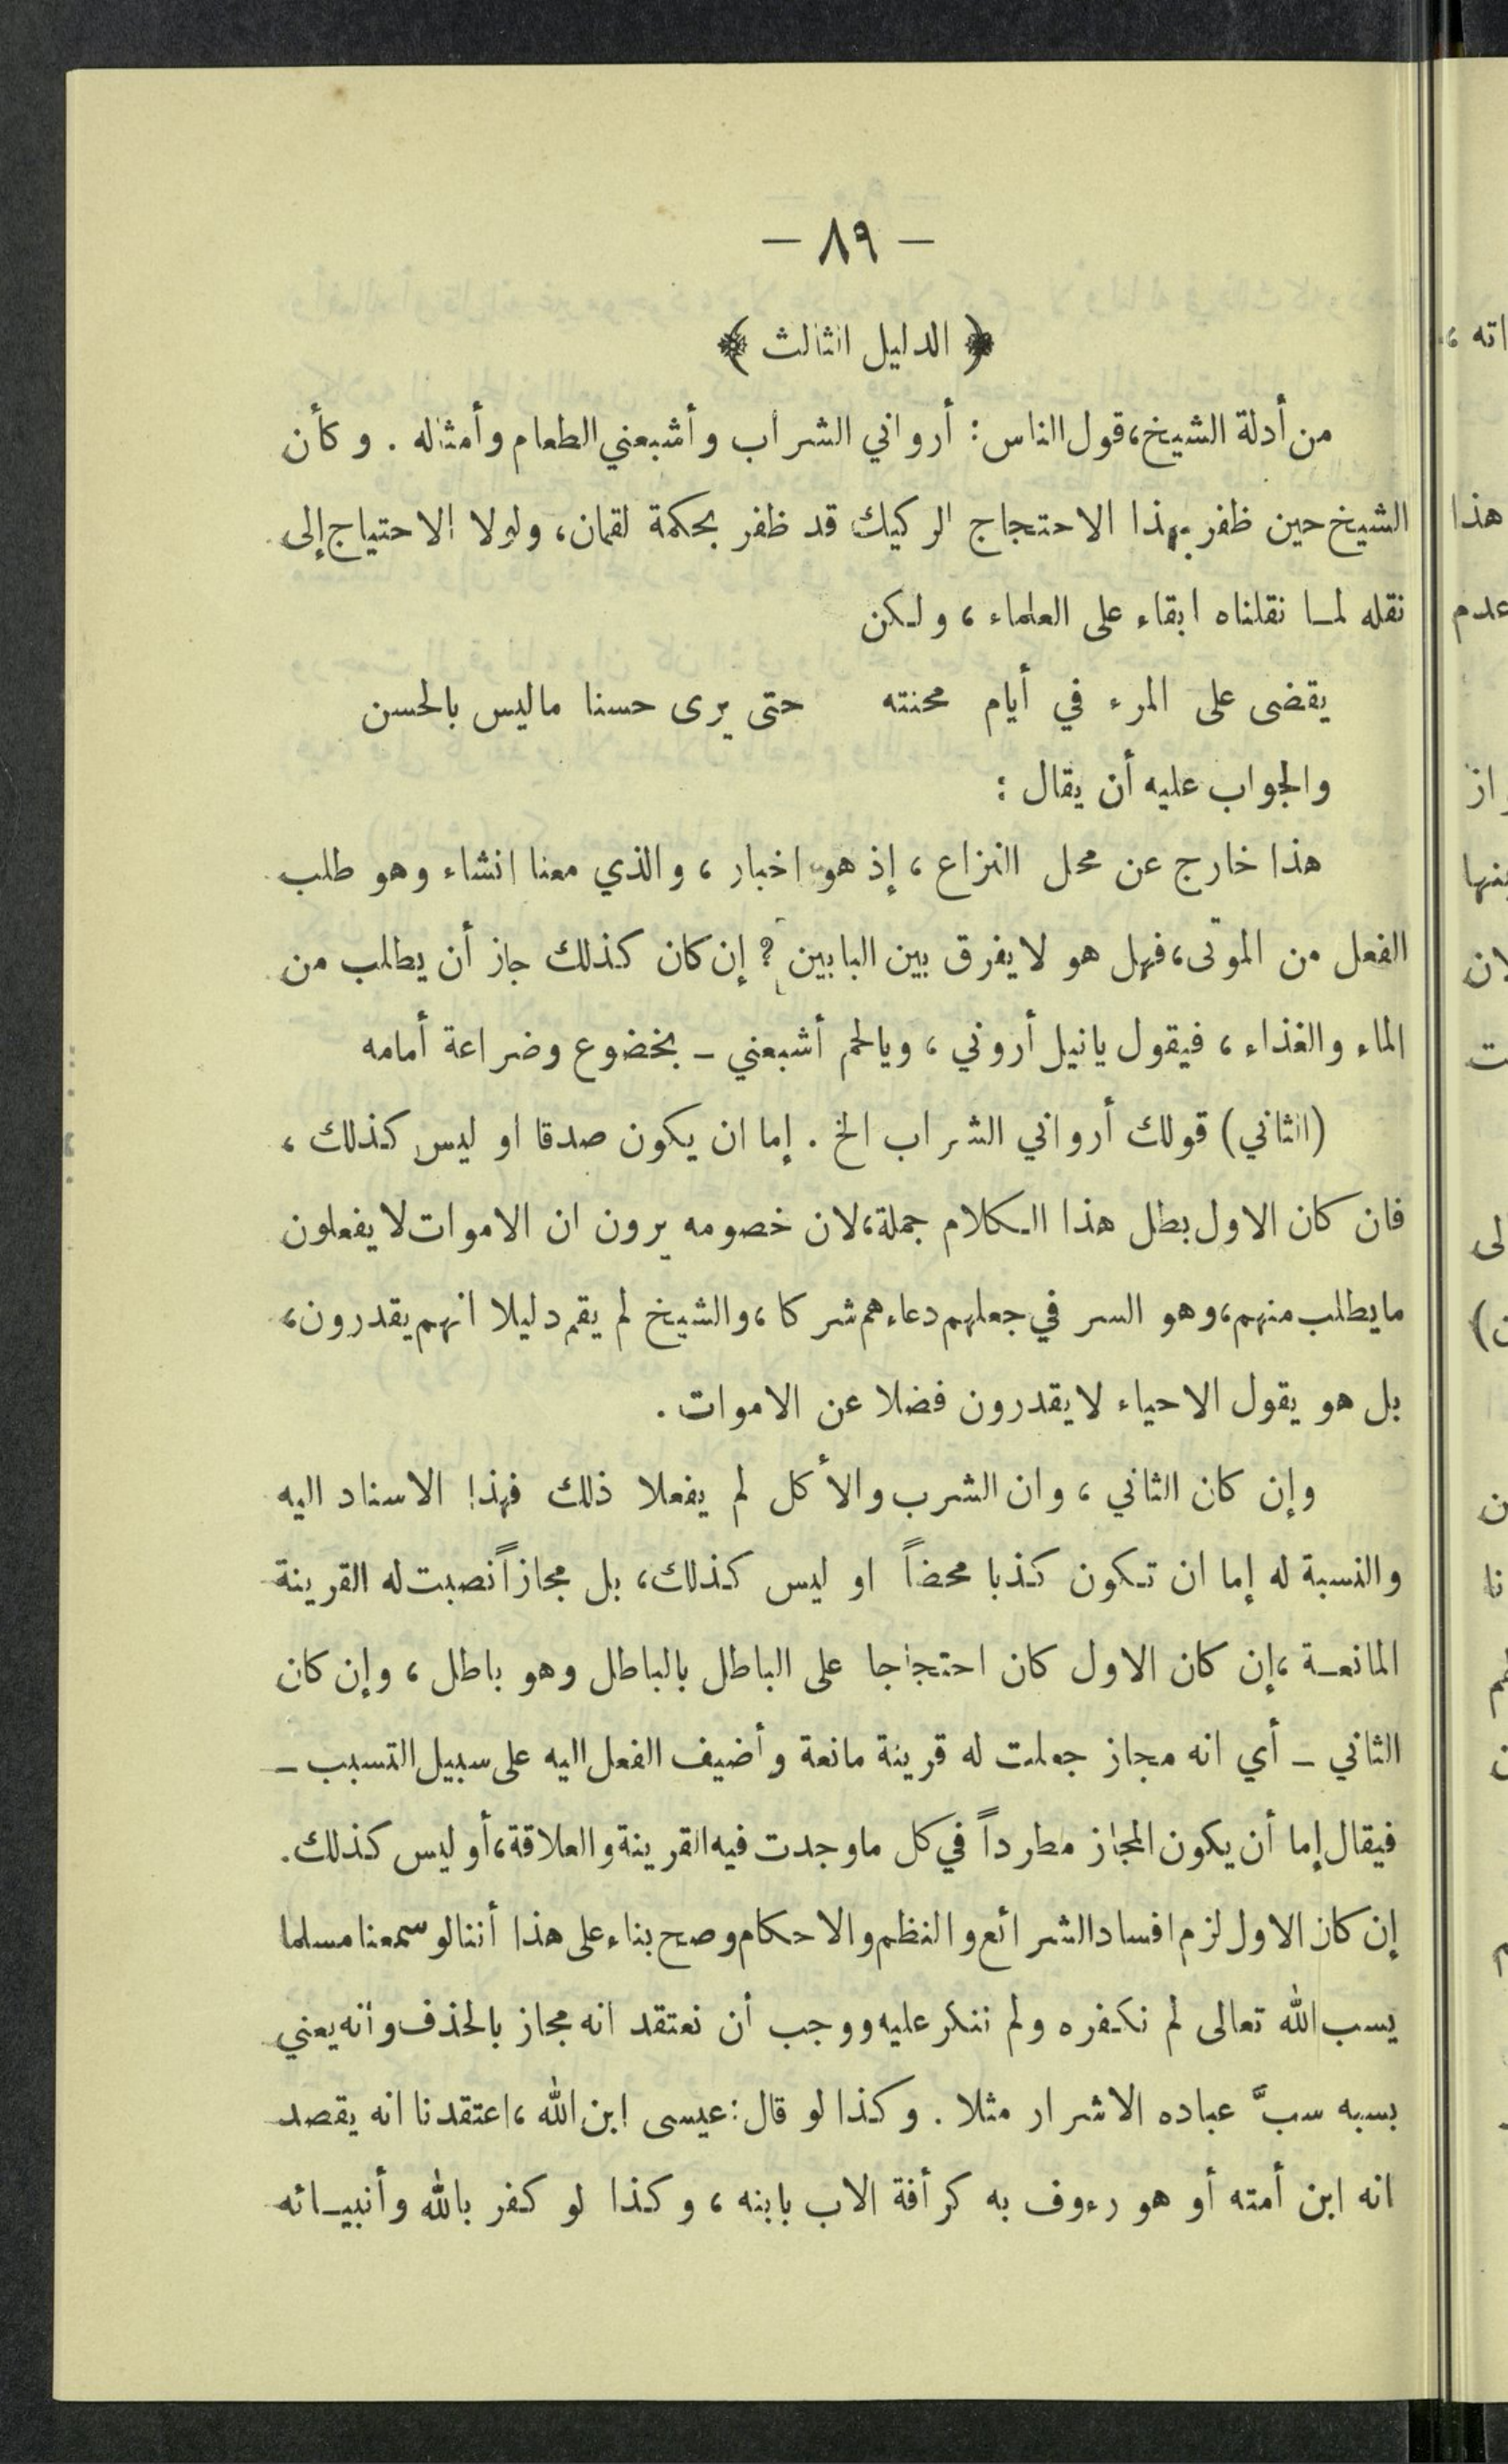 — ٨٩ —
﴿ الدليل الثالث ﴾
من أدلة الشيخ، قول الناس: أرواني الشراب وأشبعني الطعام وأمثاله . وكأن
الشيخ حين ظفر بهذا الاحتجاج الركيك قد ظفر بحكمة لقمان، ولولا الاحتياج إلى
نقله لما نقلناه ابقاء على العلماء، ولكن
يقضى على المرء في أيام محنته حتى يرى حسنا ماليس بالحسن
والجواب عليه أن يقال :
هذا خارج عن محل النزاع، إذ هو اخبار، والذي معنا انشاء وهو طلب
الفعل من الموتى، فهل هو لا يفرق بين البابين؟ إن كان كذلك جاز أن يطلب من
الماء والغذاء، فيقول يانيل أروني، ويالحم أشبعني – بخضوع وضراعة أمامه
(الثاني) قولك أرواني الشراب الخ . إما ان يكون صدقا او ليس كذلك،
فان كان الاول بطل هذا الكلام جملة، لان خصومه يرون ان الاموات لا يفعلون
مايطلب منهم، وهو السر في جعلهم دعاءهم شركا، والشيخ لم يقم دليلا انهم يقدرون،
بل هو يقول الاحياء لا يقدرون فضلا عن الاموات .
وإن كان الثاني، وان الشرب والأكل لم يفعلا ذلك فهذا الاسناد اليه
والنسبة له إما ان تكون كذبا محضاً او ليس كذلك، بل مجازاً نصبت له القرينة
المانعة، إن كان الاول كان احتجاجا على الباطل بالباطل وهو باطل، وإن كان
الثاني – أي انه مجاز جعلت له قرينة مانعة وأضيف الفعل اليه على سبيل التسبب –
فيقال إما أن يكون المجاز مطرداً في كل ماوجدت فيه القرينة والعلاقة، أو ليس كذلك.
إن كان الاول لزم افساد الشرائع والنظم والاحكام وصح بناء على هذا أننا لو سمعنا مسلما
يسب الله تعالى لم نكفره ولم ننكر عليه ووجب أن نعتقد انه مجاز بالحذف وأنه يعني
بسبه سبَّ عباده الاشرار مثلا . وكذا لو قال: عيسى ابن الله، اعتقدنا انه يقصد
انه ابن أمته أو هو رءوف به كرأفة الاب بابنه، وكذا لو كفر بالله وأنبيائه
اته،
هذا
عدم
لان
لى